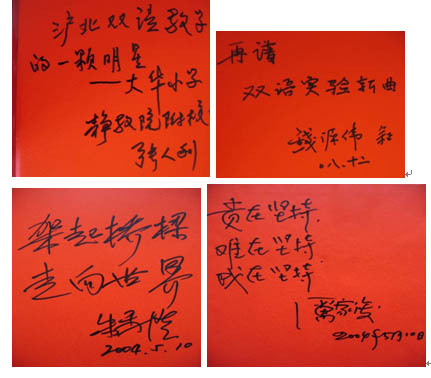 沪北双语教学
的一颗明星
——大华小学
静教院附校
张人利
再谱
双语实验新曲
錢源伟
08.十二
架起橋樑
走向世界
朱
2004.5.10
贵在坚持.
难在坚持
成在坚持
2004年5月10日